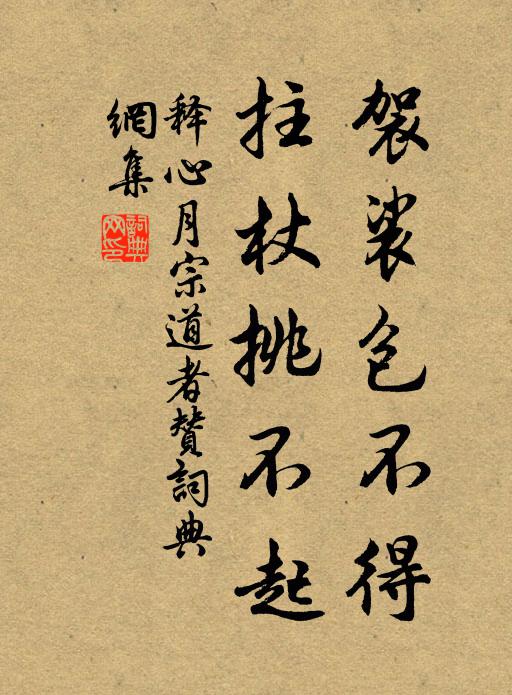 袈裟包不得
拄杖挑不起
释心月宗道者贊詞典
網集
詞典網印